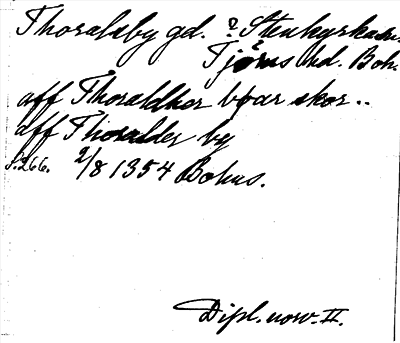 Thoraldsby gd. ? Stenkyrka sn.
? Tjörns hd. Boh.
aff Thoraldher bpar skor..
aff Thoralder by
s. 266. 2/8 1354 Bohus.
Dipl. norv. II.